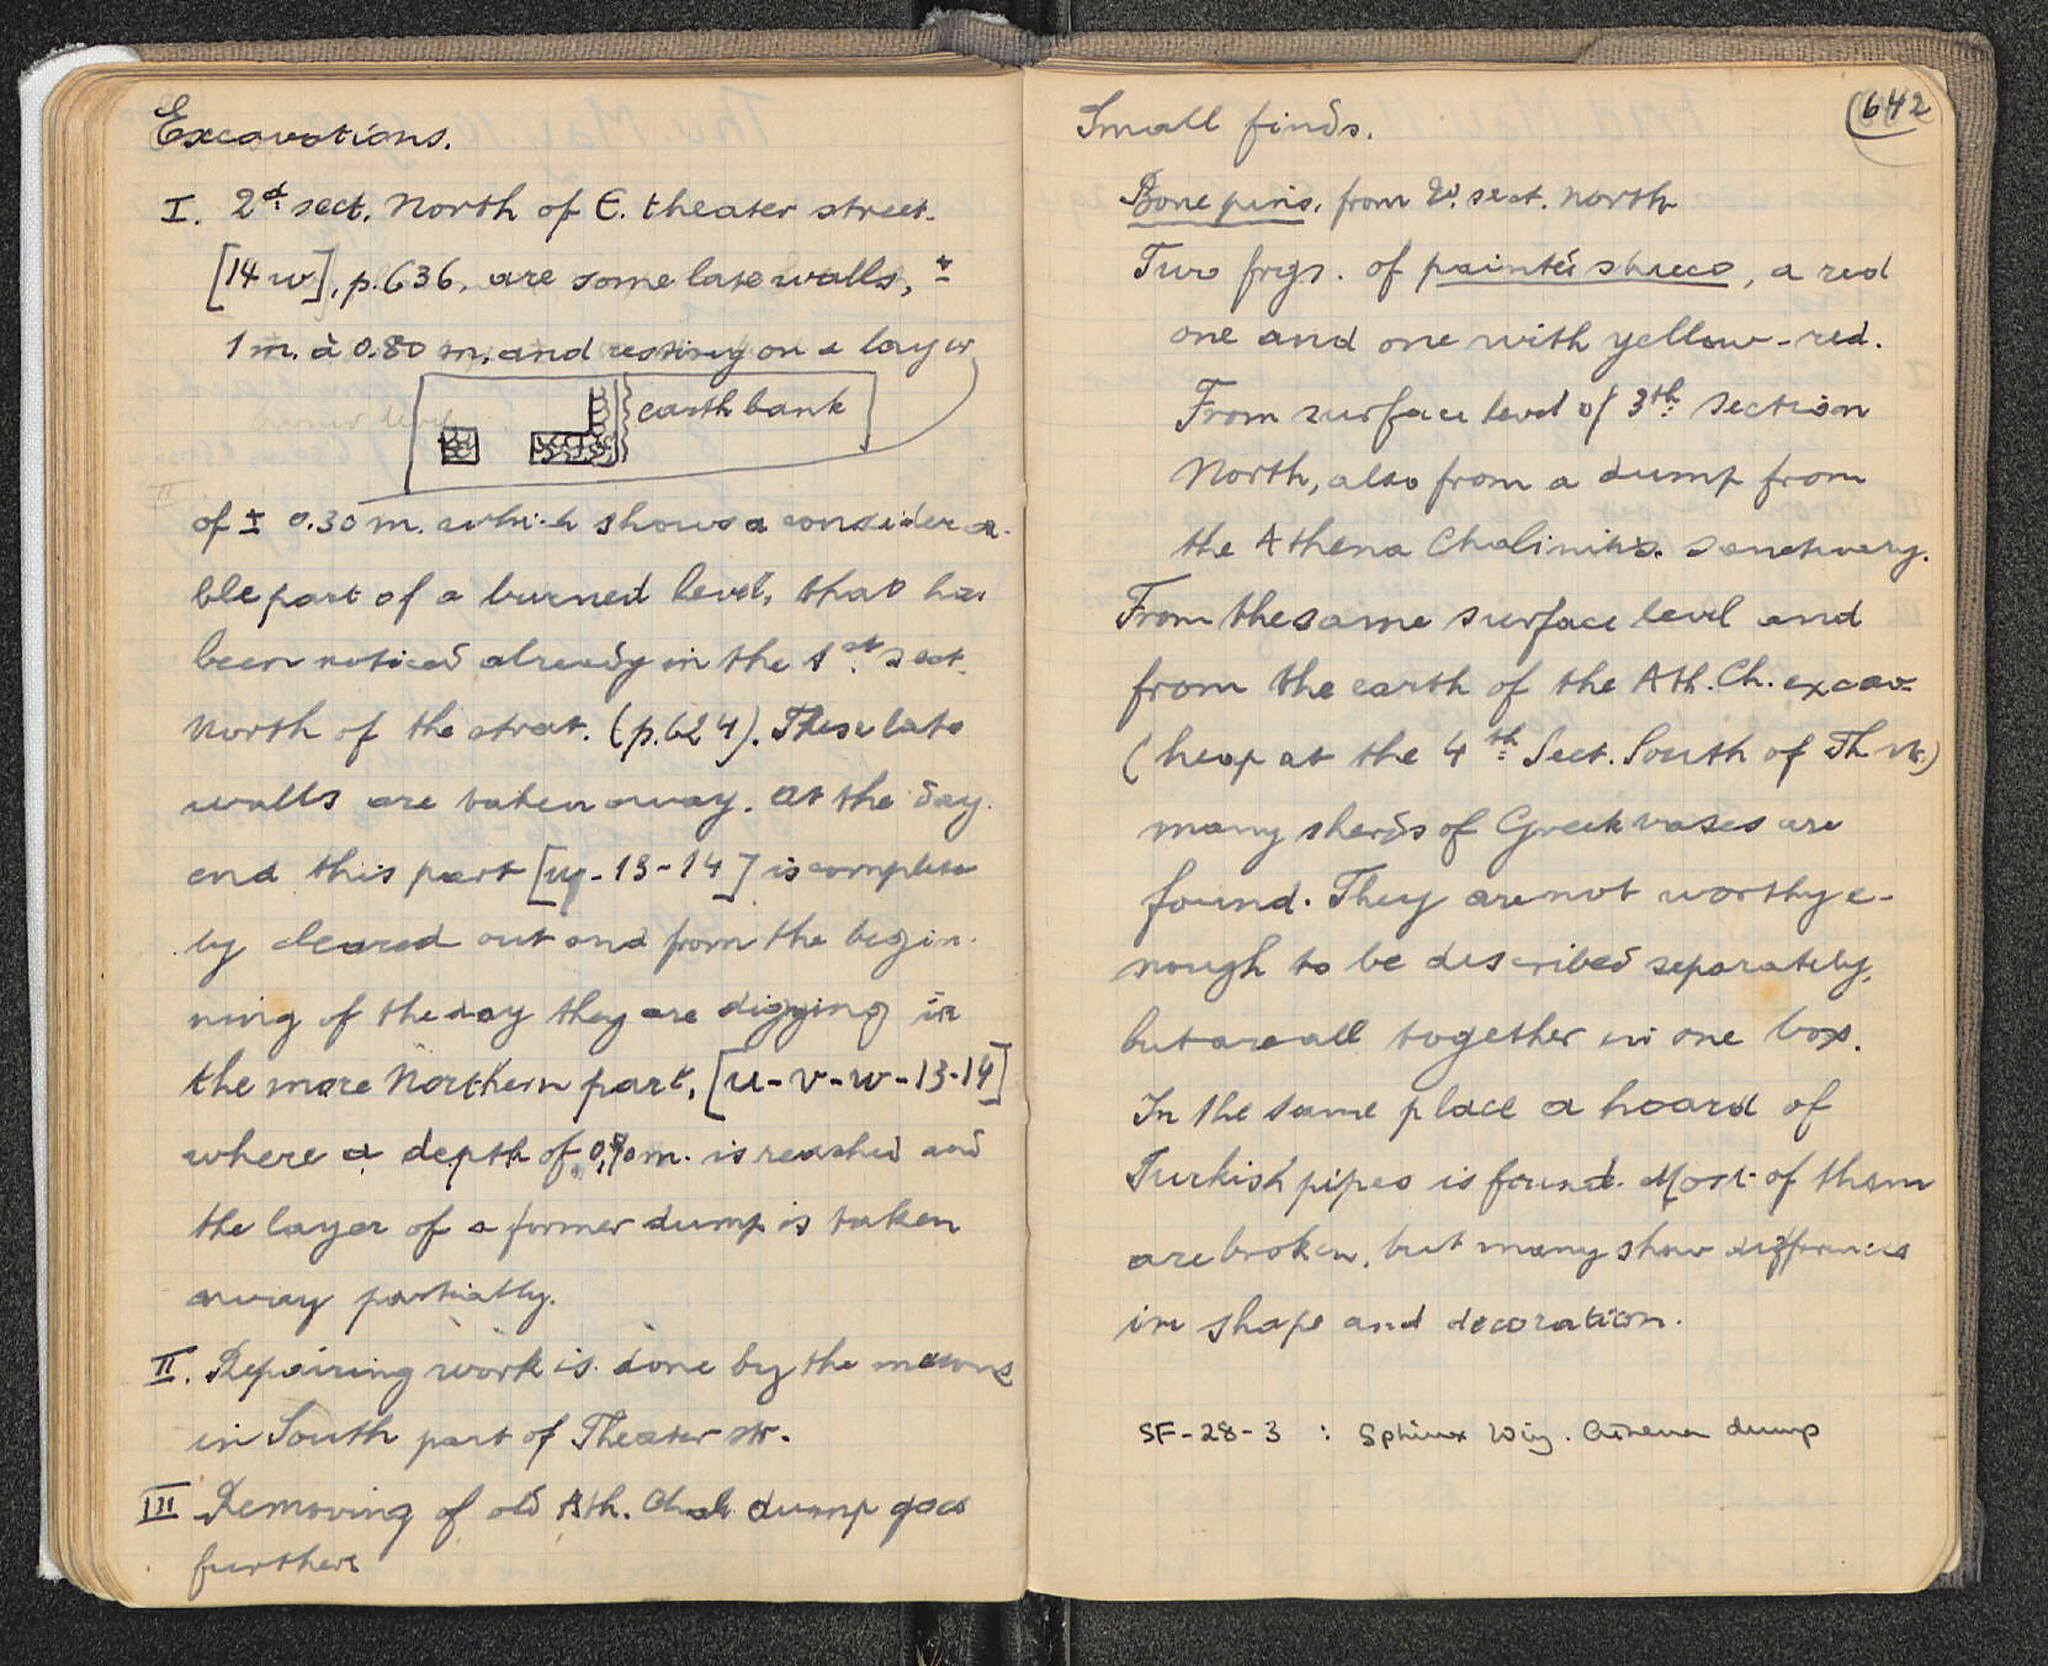 Excavations.
I. 2d sect. North of E. theater street.
[14 w], p. 636, are some late walls, ±
1 m. à 0.80 m, and resting on a layer
earth bank
of ± 0.30 m. which shows a considera-
ble part of a burned level, that has
been noticed already in the 1st sect.
North of the street. (p. 624). These late
walls are taken away. At the day
end this part [ -13-14] is complete
ly cleared out and from the begin-
ning of the day they are digging in
the more Northern part, [u-v-w-13-14]
where a depth of m. is reached and
the layer of a former dump is taken
away partially.
II. Repairing work is done by the masons
in South part of Theater str.
III Removing of old Ath. Chal. dump goes
further
642
Small finds.
Bone pins, from sect. North
Two frgs. of painted stucco, a red
one and one with yellow-red.
From surface level of 3th section
North, also from a dump from
the Athena Chalinitis. sanctuary.
From the same surface level and
from the earth of the Ath. Ch. excav.
(heap at the 4th Sect. South of Th str.)
many sherds of Greek vases are
found. They are not worthy e-
nough to be described separately,
but are all together in one box.
In the same place a hoard of
Turkish pipes is found. Most of them
are broken, but many show differences
in shape and decoration.
SF-28-3 : Sphinx Wing. Athena dump